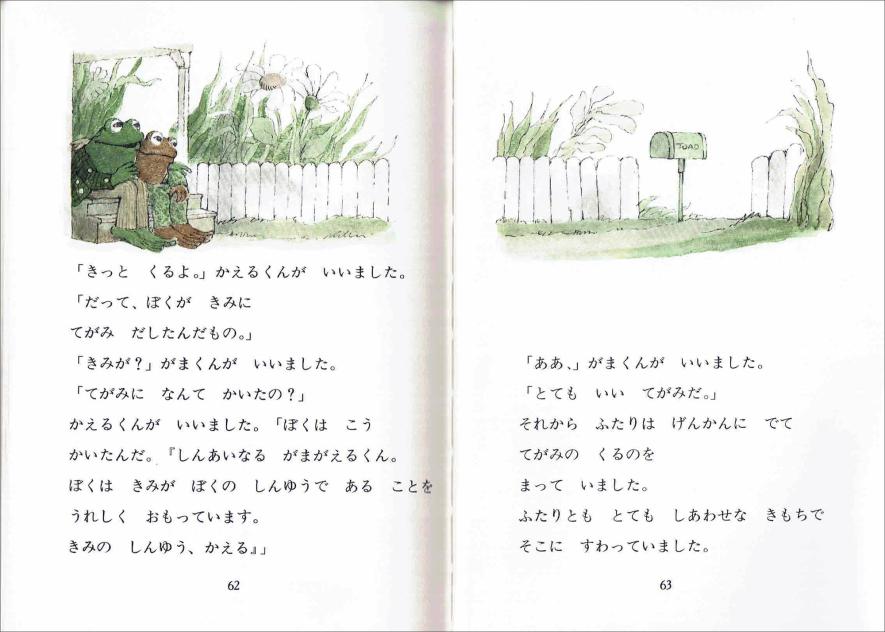 「きっと　くるよ。」かえるくんが　いいました。
「だって、ぼくが　きみに
てがみ　だしたんだもの。」
「きみが？」がまくんが　いいました。
「てがみに　なんて　かいたの？」
かえるくんが　いいました。「ぼくは　こう
かいたんだ。『しんあいなる　がまがえるくん。
ぼくは　きみが　ぼくの　しんゆうで　ある　ことを
うれしく　おもっています。
きみの　しんゆう、かえる』」
62
TOAD
「ああ、」がまくんが　いいました。
「とても　いい　てがみだ。」
それから　ふたりは　げんかんに　でて
てがみの　くるのを
まって　いました。
ふたりとも　とても　しあわせな　きもちで
そこに　すわっていました。
63